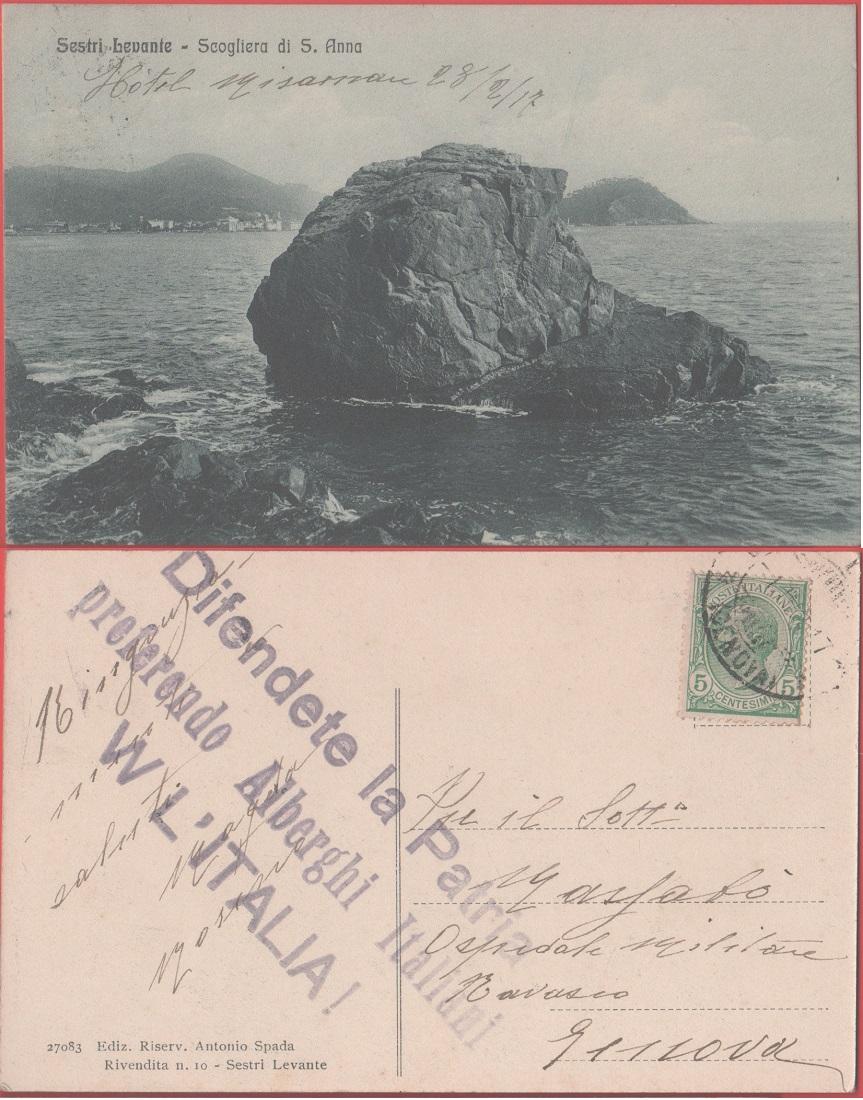 Sestri Levante - Scogliera di S. Anna
Hôtel 28/2/17
Difendete la Patria
preferendo Alberghi Italiani
W L'ITALIA!
saluti
Magda
POSTE ITALIANE
5 5
CENTESIMI
GENOVA
Per il Sott°
Ospedale Militare
Ravasco
Genova
27083 Ediz. Riserv. Antonio Spada
Rivendita n. 10 - Sestri Levante